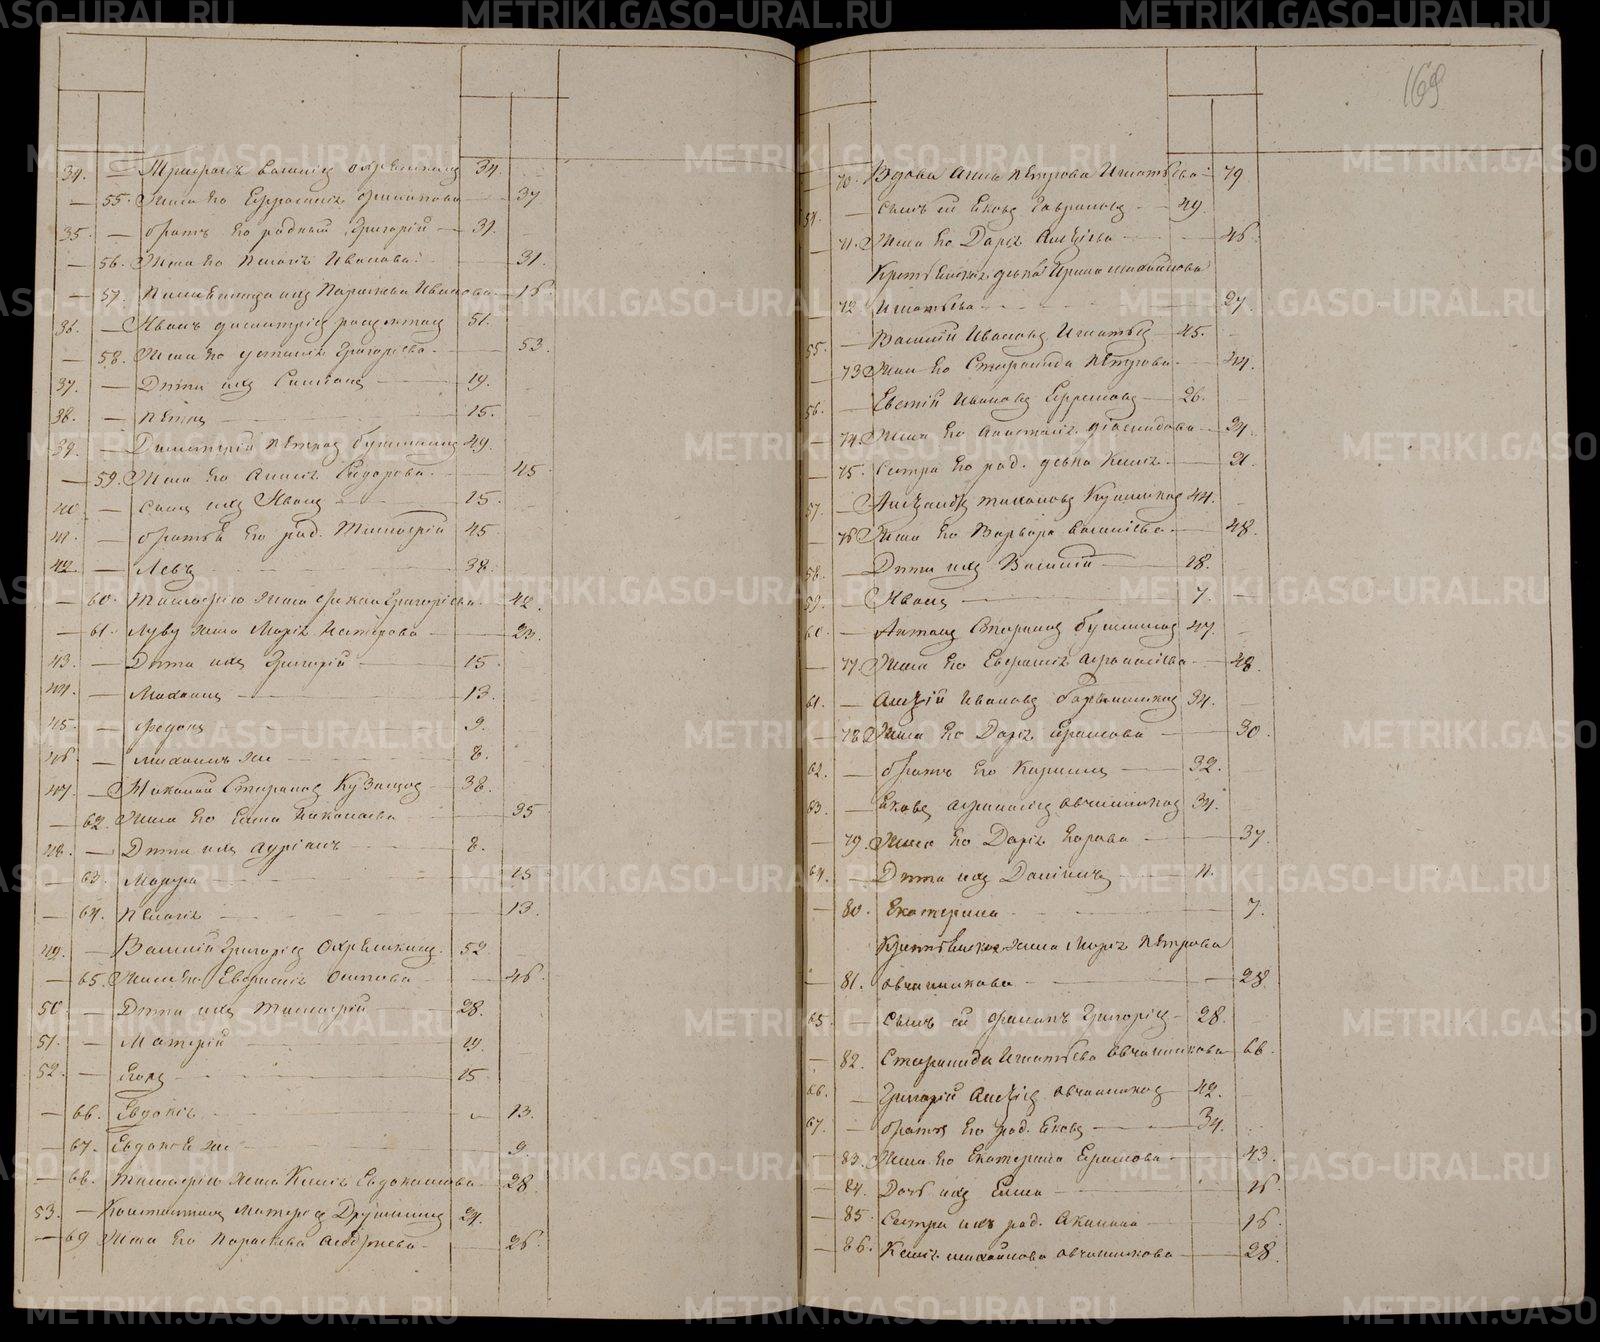 METRIKI.GASO-URAL.RU
169
34. — Трифонъ 34.
— 55. Жена его Ефросинія Филипова — 37
35. — братъ его родный Григорій — 31.
— 56. Жена его Пелагія Иванова — 31.
— 57. Параскева Иванова — 16
36. — Иванъ 51.
— 58. Жена его Устинія Григорьева — 53.
37. — Дѣти ихъ — 19.
38. — Петръ — 15.
39. — Димитрій Петровъ 49.
— 59. Жена его Анисія Сидорова — 45
40. — Сынъ ихъ Иванъ — 15
41. — братья его род. Тимофей 45
42. — Левъ — 38.
— 60. Тимофѣя жена Григорьева — 42.
— 61. Льву жена Марія Нестерова — 23.
43. — Дѣти ихъ Григорій — 15
44. — Михаилъ — 13.
45. — Федоръ — 9.
46. — Михаилъ же — 8.
47. — Николай Стефановъ Кузнецовъ — 38.
— 62. Жена его Елена Николаева — 35
48. — Дѣти ихъ Адріанъ — 8.
— 63. Марфа — 15
— 64. Пелагія — 13.
49. — Василій Григорьевъ 52.
— 65. Жена его Евфросинія Осипова — 46.
50. — Дѣти ихъ Тимофей — 28.
51. — 19.
52. — Егоръ — 15
— 66. Евдокія — 13.
— 67. Евдокія же — 9.
— 68. Тимофея жена Ксенія Евдокимова — 28.
53. — Константинъ Дружининъ 24.
— 69 Жена его Параскева Андреева — 26.
— 70. Вдова Анна Петрова Игнатьева — 79
54. — Сынъ ей Яковъ Гавриловъ — 49.
— 71. Жена его Дарія Алексѣева — 46.
дѣвка Ирина Михайлова
— 72 Игнатьева — 27.
55. — Василій Ивановъ Игнатьевъ — 45.
— 73 Жена его Стефанида Петрова — 44.
56. — Евсѣй Ивановъ Ефремовъ — 26.
— 74. Жена его Анастасія — 34.
— 75. Сестра его род. дѣвка Ксенія — 21.
57. — 44.
— 76 Жена его Варвара Васильева — 48.
58. — Дѣти ихъ Василій — 18.
59. — Иванъ — 7.
60. — Антонъ Стефановъ 47.
— 77. Жена его Афанасьева — 48.
61. — Алексѣй Ивановъ 34.
— 78. Жена его Дарія — 30.
62. — братъ его — 32.
63. — Яковъ Афанасьевъ Овчинниковъ 34.
— 79. Жена его Дарія Егорова — 37.
64. — Дѣти ихъ Даніилъ — 11.
— 80. Екатерина — 7.
жена Марія Петрова
— 81. Овчинникова — 28
65. — Сынъ ей Филипъ Григорьевъ — 28.
— 82. Стефанида Игнатьева Овчинникова — 66.
66. — Григорій Алексѣевъ Овчинниковъ — 42.
67. — братъ его род. Яковъ — 34.
— 83. Жена его Екатерина — 43.
— 84. Дочь ихъ Елена — 16
— 85. Сестра ихъ род. Акилина — 16.
— 86. Ксенія Михайлова Овчинникова — 28.